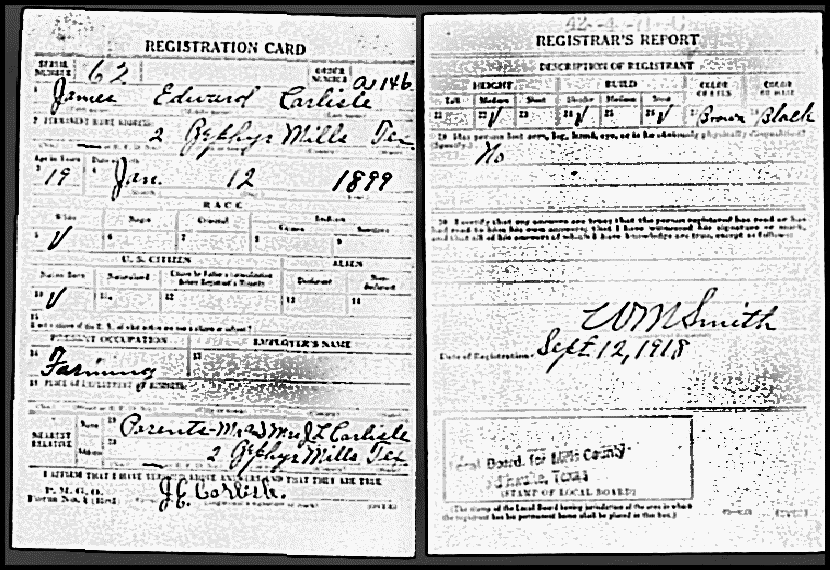 REGISTRATION CARD
SERIAL NUMBER 62 ORDER NUMBER A1146
1 James Edward Carlisle
2 PERMANENT HOME ADDRESS:
2 Zephyr Mills Tex
Age in Years Date of Birth
19 Jan. 12 1899
RACE
White Negro Oriental Indian
5 V 6 7 8 9
U. S. CITIZEN ALIEN
Native Born Naturalized Citizen by Father's Naturalization Before Registrant's Majority Declarant Non-declarant
10 V 11 12 13 14
15
PRESENT OCCUPATION EMPLOYER'S NAME
16 Farming
NEAREST RELATIVE
Name 19 Parents-Mr & Mrs J L Carlisle
Address 20 2 Zephyr Mills Tex
I AFFIRM THAT I HAVE VERIFIED ABOVE ANSWERS AND THAT THEY ARE TRUE
P. M. G. O.
J E Carlisle.
REGISTRAR'S REPORT
DESCRIPTION OF REGISTRANT
HEIGHT BUILD COLOR OF EYES COLOR
Tall Medium Short Slender Medium Stout
21 22 V 23 24 V 25 26 V 27 Brown 28 Black
29 Has person lost arm, leg, hand, eye, or is he obviously physically disqualified?
(Specify.)
No
30 I certify that my answers are true; that the person registered has read or has
had read to him his own answers; that I have witnessed his signature or mark,
and that all of his answers of which I have knowledge are true, except as follows:
W M Smith
Date of Registration Sept 12, 1918
Local Board for Mills County
Texas
(STAMP OF LOCAL BOARD)
(The stamp of the Local Board having jurisdiction of the area in which
the registrant has his permanent home shall be placed in this box.)